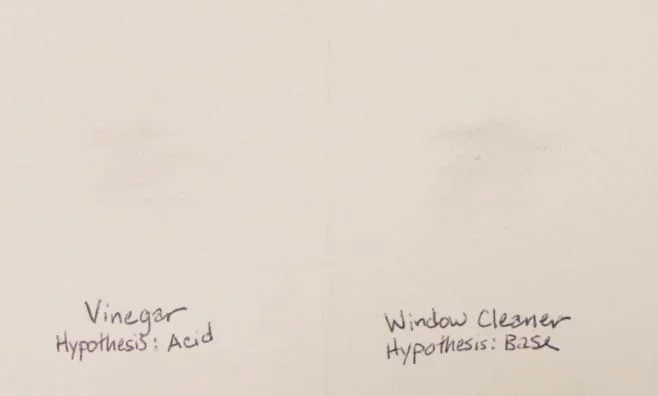 Vinegar
Hypothesis: Acid
Window Cleaner
Hypothesis: Base